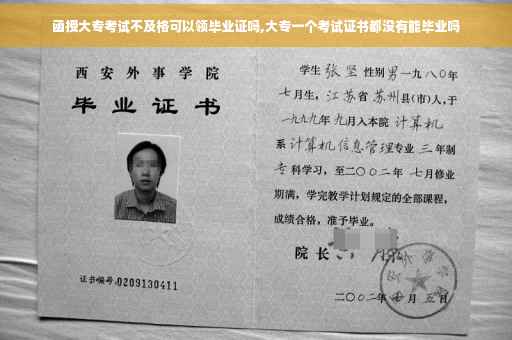 函授大专考试不及格可以领毕业证吗,大专一个考试证书都没有能毕业吗
西安外事学院
毕业证书
证书编号:0209130411
学生张坚性别男一九八〇年
七月生，江苏省苏州县(市)人,于
一九九九年九月入本院计算机
系计算机信息管理专业三年制
专科学习，至二〇〇二年七月修业
期满，学完教学计划规定的全部课程，
成绩合格，准予毕业。
院长
二〇〇二年七月五日